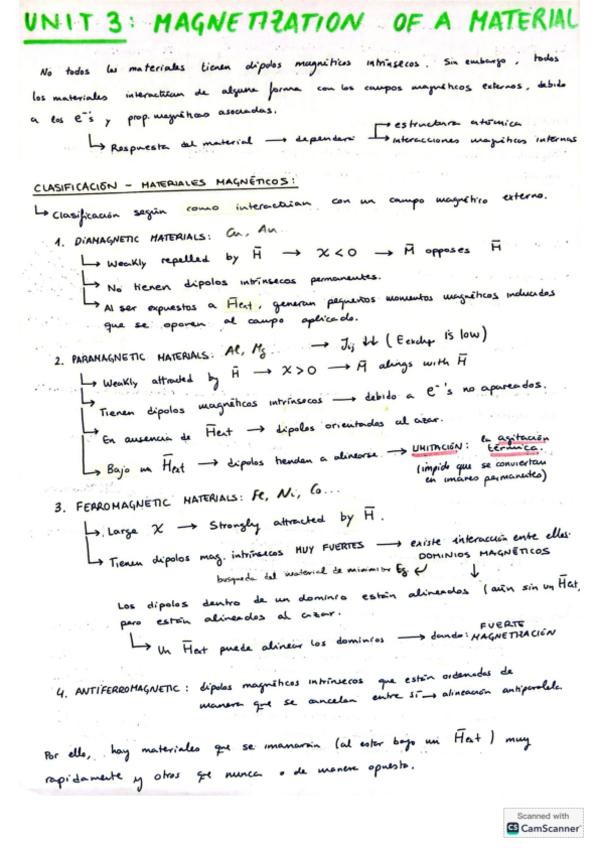 UNIT 3: MAGNETIZATION OF A MATERIAL
No todos los materiales tienen dipolos magnéticos intrínsecos. Sin embargo, todos
los materiales interactúan de alguna forma con los campos magnéticos externos, debido
a los e⁻'s y prop. magnéticas asociadas.
↳ Respuesta del material → dependerá
→ estructura atómica
→ interacciones magnéticas internas
CLASIFICACIÓN - MATERIALES MAGNÉTICOS:
↳ Clasificación según como interactúan con un campo magnético externo.
1. DIAMAGNETIC MATERIALS: Cu, Au...
↳ Weakly repelled by H̄ → χ<0 → M̄ opposes H̄
↳ No tienen dipolos intrínsecos permanentes.
↳ Al ser expuestos a H̄ext, generan pequeños momentos magnéticos inducidos
que se oponen al campo aplicado.
2. PARAMAGNETIC MATERIALS: Al, Mg... → Jij ↓↓ (Eexchg is low)
↳ Weakly attracted by H̄ → χ>0 → M̄ alings with H̄
↳ Tienen dipolos magnéticos intrínsecos → debido a e⁻'s no apareados.
↳ En ausencia de H̄ext → dipolos orientados al azar.
↳ Bajo un H̄ext → dipolos tienden a alinearse → LIMITACIÓN: la agitación
térmica.
(impide que se conviertan
en imanes permanentes)
3. FERROMAGNETIC MATERIALS: Fe, Ni, Co...
↳ Large χ → Strongly attracted by H̄.
↳ Tienen dipolos mag. intrínsecos MUY FUERTES → existe interacción entre ellos.
busqueda del material de minimizar Eg ↙ DOMINIOS MAGNÉTICOS
↓
Los dipolos dentro de un dominio están alineados (aún sin un H̄ext,
pero están alineados al azar.
↳ Un H̄ext puede alinear los dominios → dando: FUERTE
MAGNETIZACIÓN
4. ANTIFERROMAGNETIC: dipolos magnéticos intrínsecos que están ordenados de
manera que se cancelan entre sí → alineación antiparalela.
Por ello, hay materiales que se imanarán (al estar bajo un H̄ext) muy
rapidamente y otros que nunca o de manera opuesta.
Scanned with
CS CamScanner